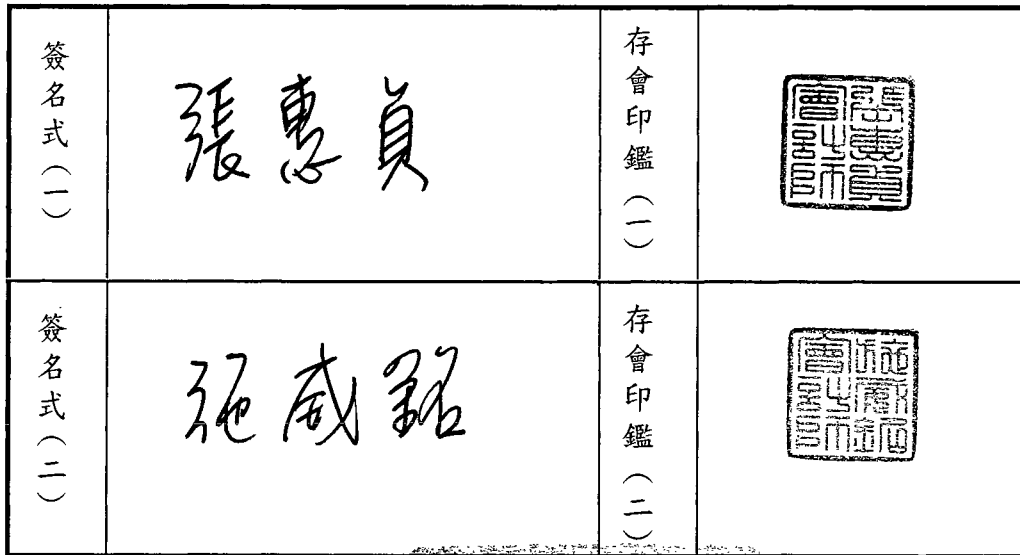 簽名式（一）
張惠貞
存會印鑑（一）
張惠貞
會計師
簽名式（二）
施威銘
存會印鑑（二）
施威銘
會計師